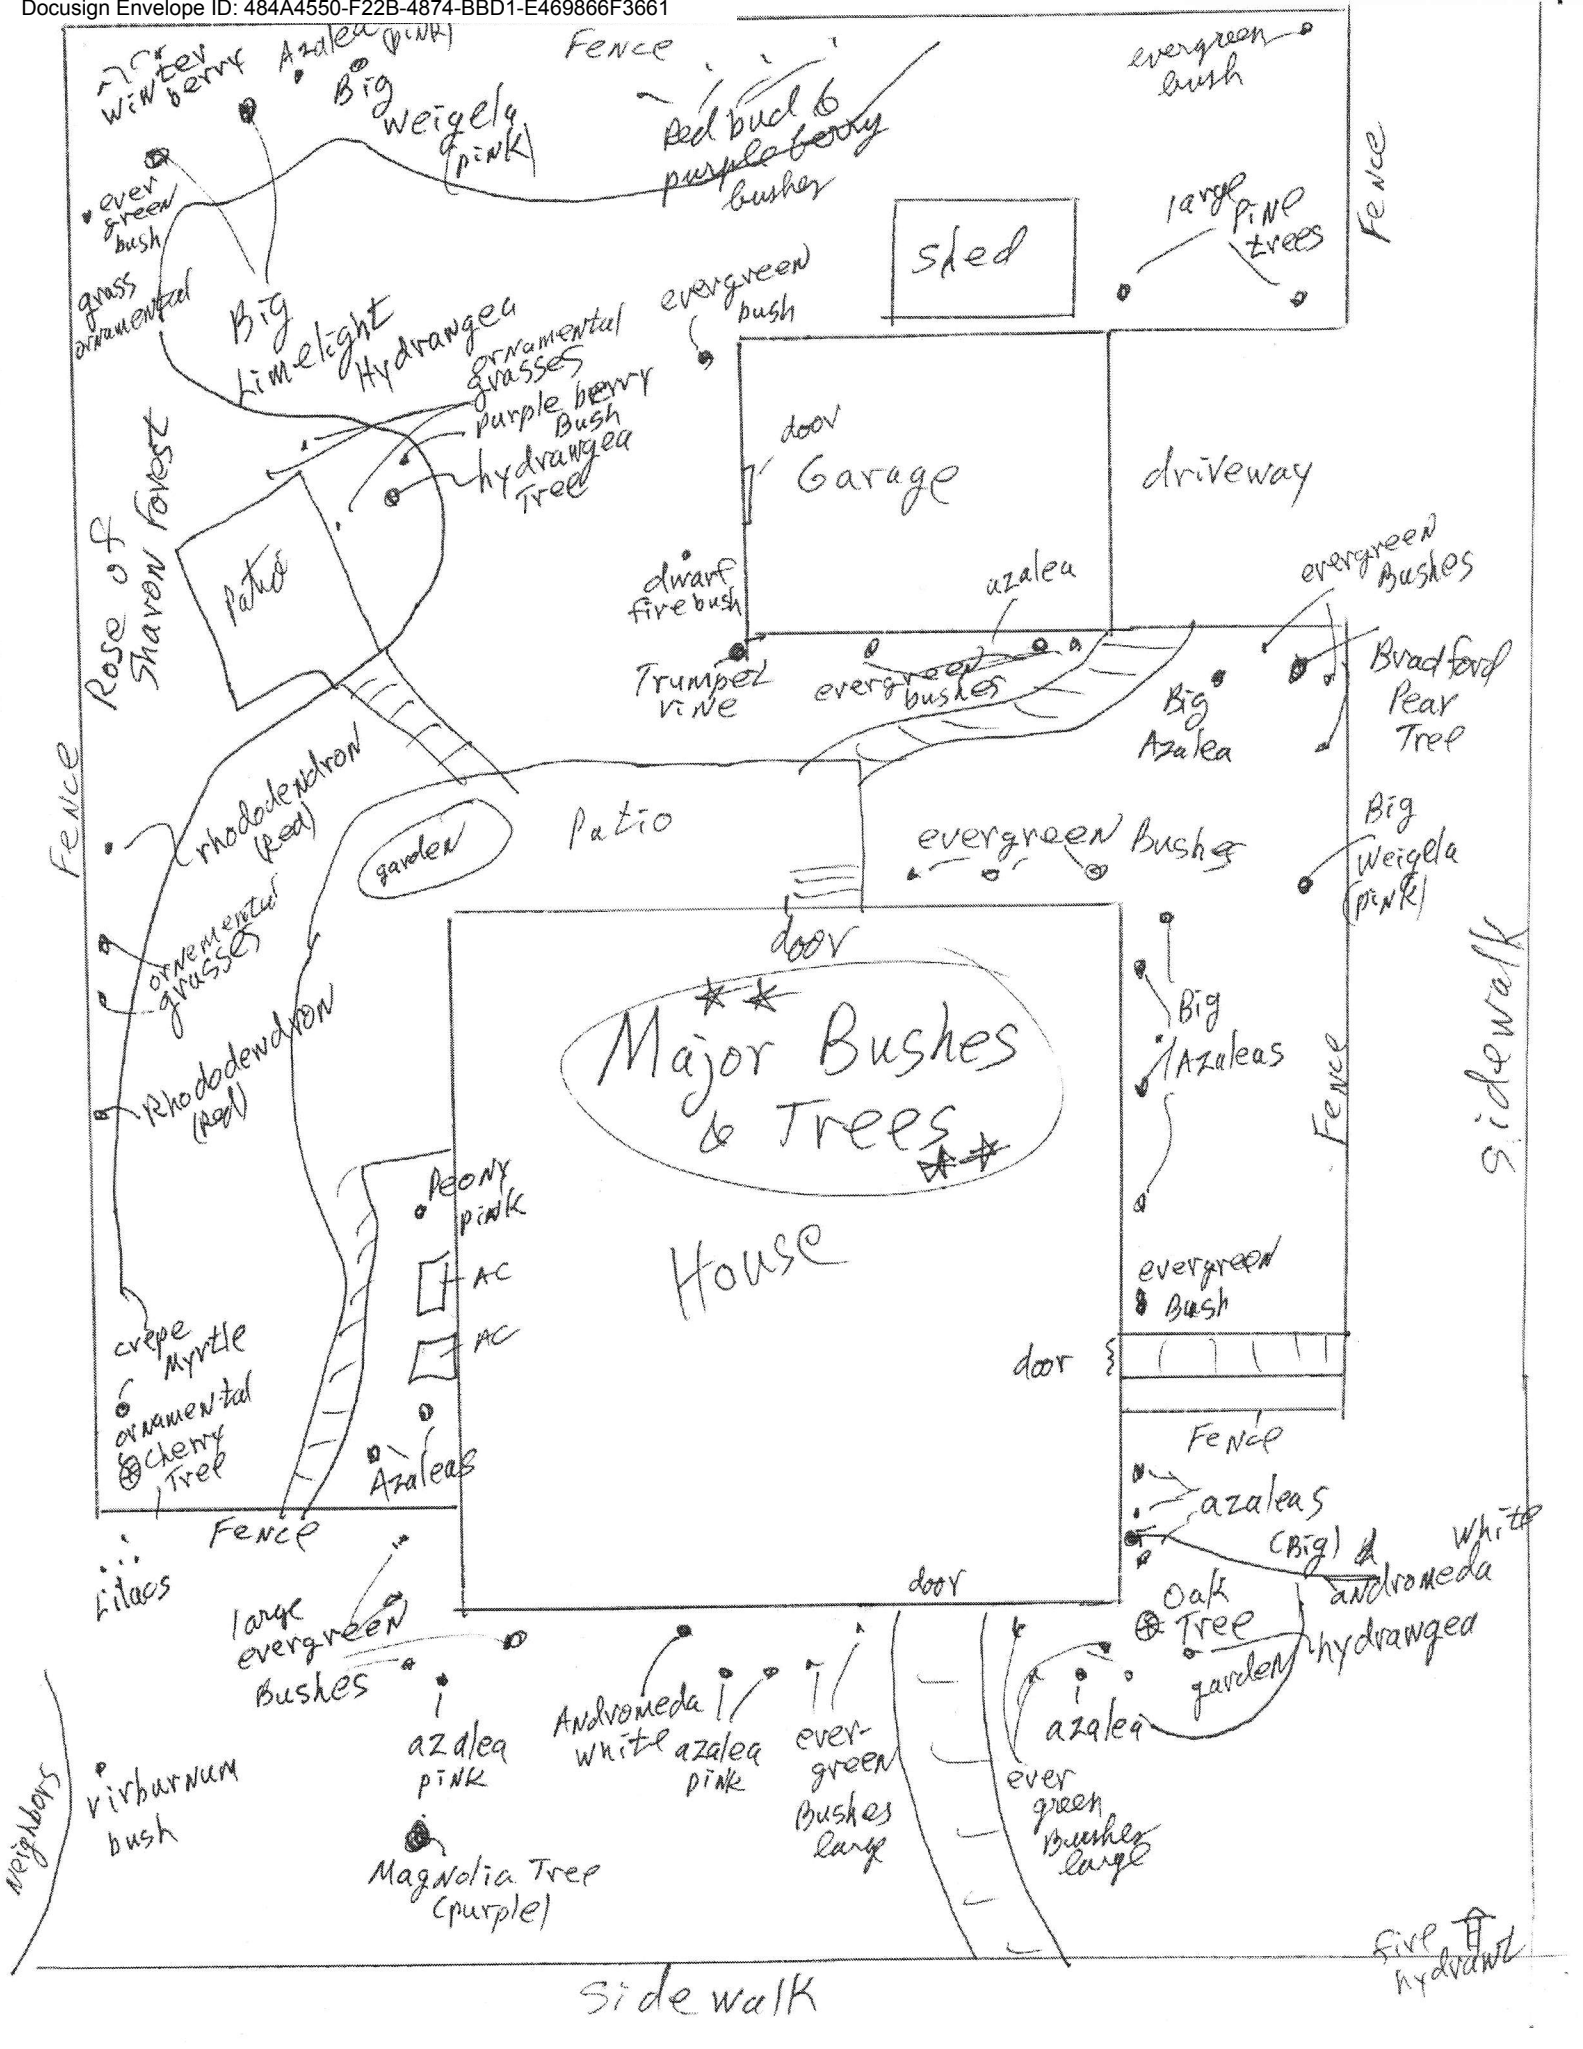 Docusign Envelope ID: 484A4550-F22B-4874-BBD1-E469866F3661
winter
berry
Azalea (pink)
Big
Weigela
(pink)
Fence
Red bud &
purple berry
bushes
evergreen
bush
Fence
ever
green
bush
grass
ornamental
Big
Limelight
Hydrangea
evergreen
bush
shed
large
pine
trees
ornamental
grasses
purple berry
Bush
hydrangea
Tree
door
Garage
driveway
Rose of
Sharon Forest
Patio
dwarf
fire bush
azalea
evergreen
Bushes
Trumpet
vine
evergreen
bushes
Big
Azalea
Bradford
Pear
Tree
Fence
rhododendron
(Red)
garden
Patio
evergreen Bushes
Big
Weigela
(pink)
ornemental
grasses
door
** 
Major Bushes
& Trees
**
Big
Azaleas
Fence
Sidewalk
Rhododendron
(Red)
Peony
pink
AC
AC
House
evergreen
Bush
door
crepe
Myrtle
ornamental
Cherry
Tree
Azaleas
Fence
Fence
azaleas
(Big)
White
andromeda
Lilacs
large
evergreen
Bushes
door
Oak
Tree
hydrangea
garden
azalea
pink
Andromeda
white
azalea
pink
ever-
green
Bushes
large
azalea
ever
green
Bushes
large
Neighbors
virburnum
bush
Magnolia Tree
(purple)
fire
hydrant
Sidewalk